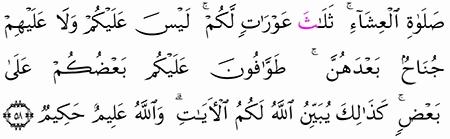 صَلَوٰةِ ٱلْعِشَآءِ ۚ ثَلَـٰثُ عَوْرَٰتٍ لَّكُمْ ۚ لَيْسَ عَلَيْكُمْ وَلَا عَلَيْهِمْ
جُنَاحٌۢ بَعْدَهُنَّ ۚ طَوَّٰفُونَ عَلَيْكُم بَعْضُكُمْ عَلَىٰ
بَعْضٍ ۚ كَذَٰلِكَ يُبَيِّنُ ٱللَّهُ لَكُمُ ٱلْـَٔايَـٰتِ ۗ وَٱللَّهُ عَلِيمٌ حَكِيمٌ ﴿٥٨﴾